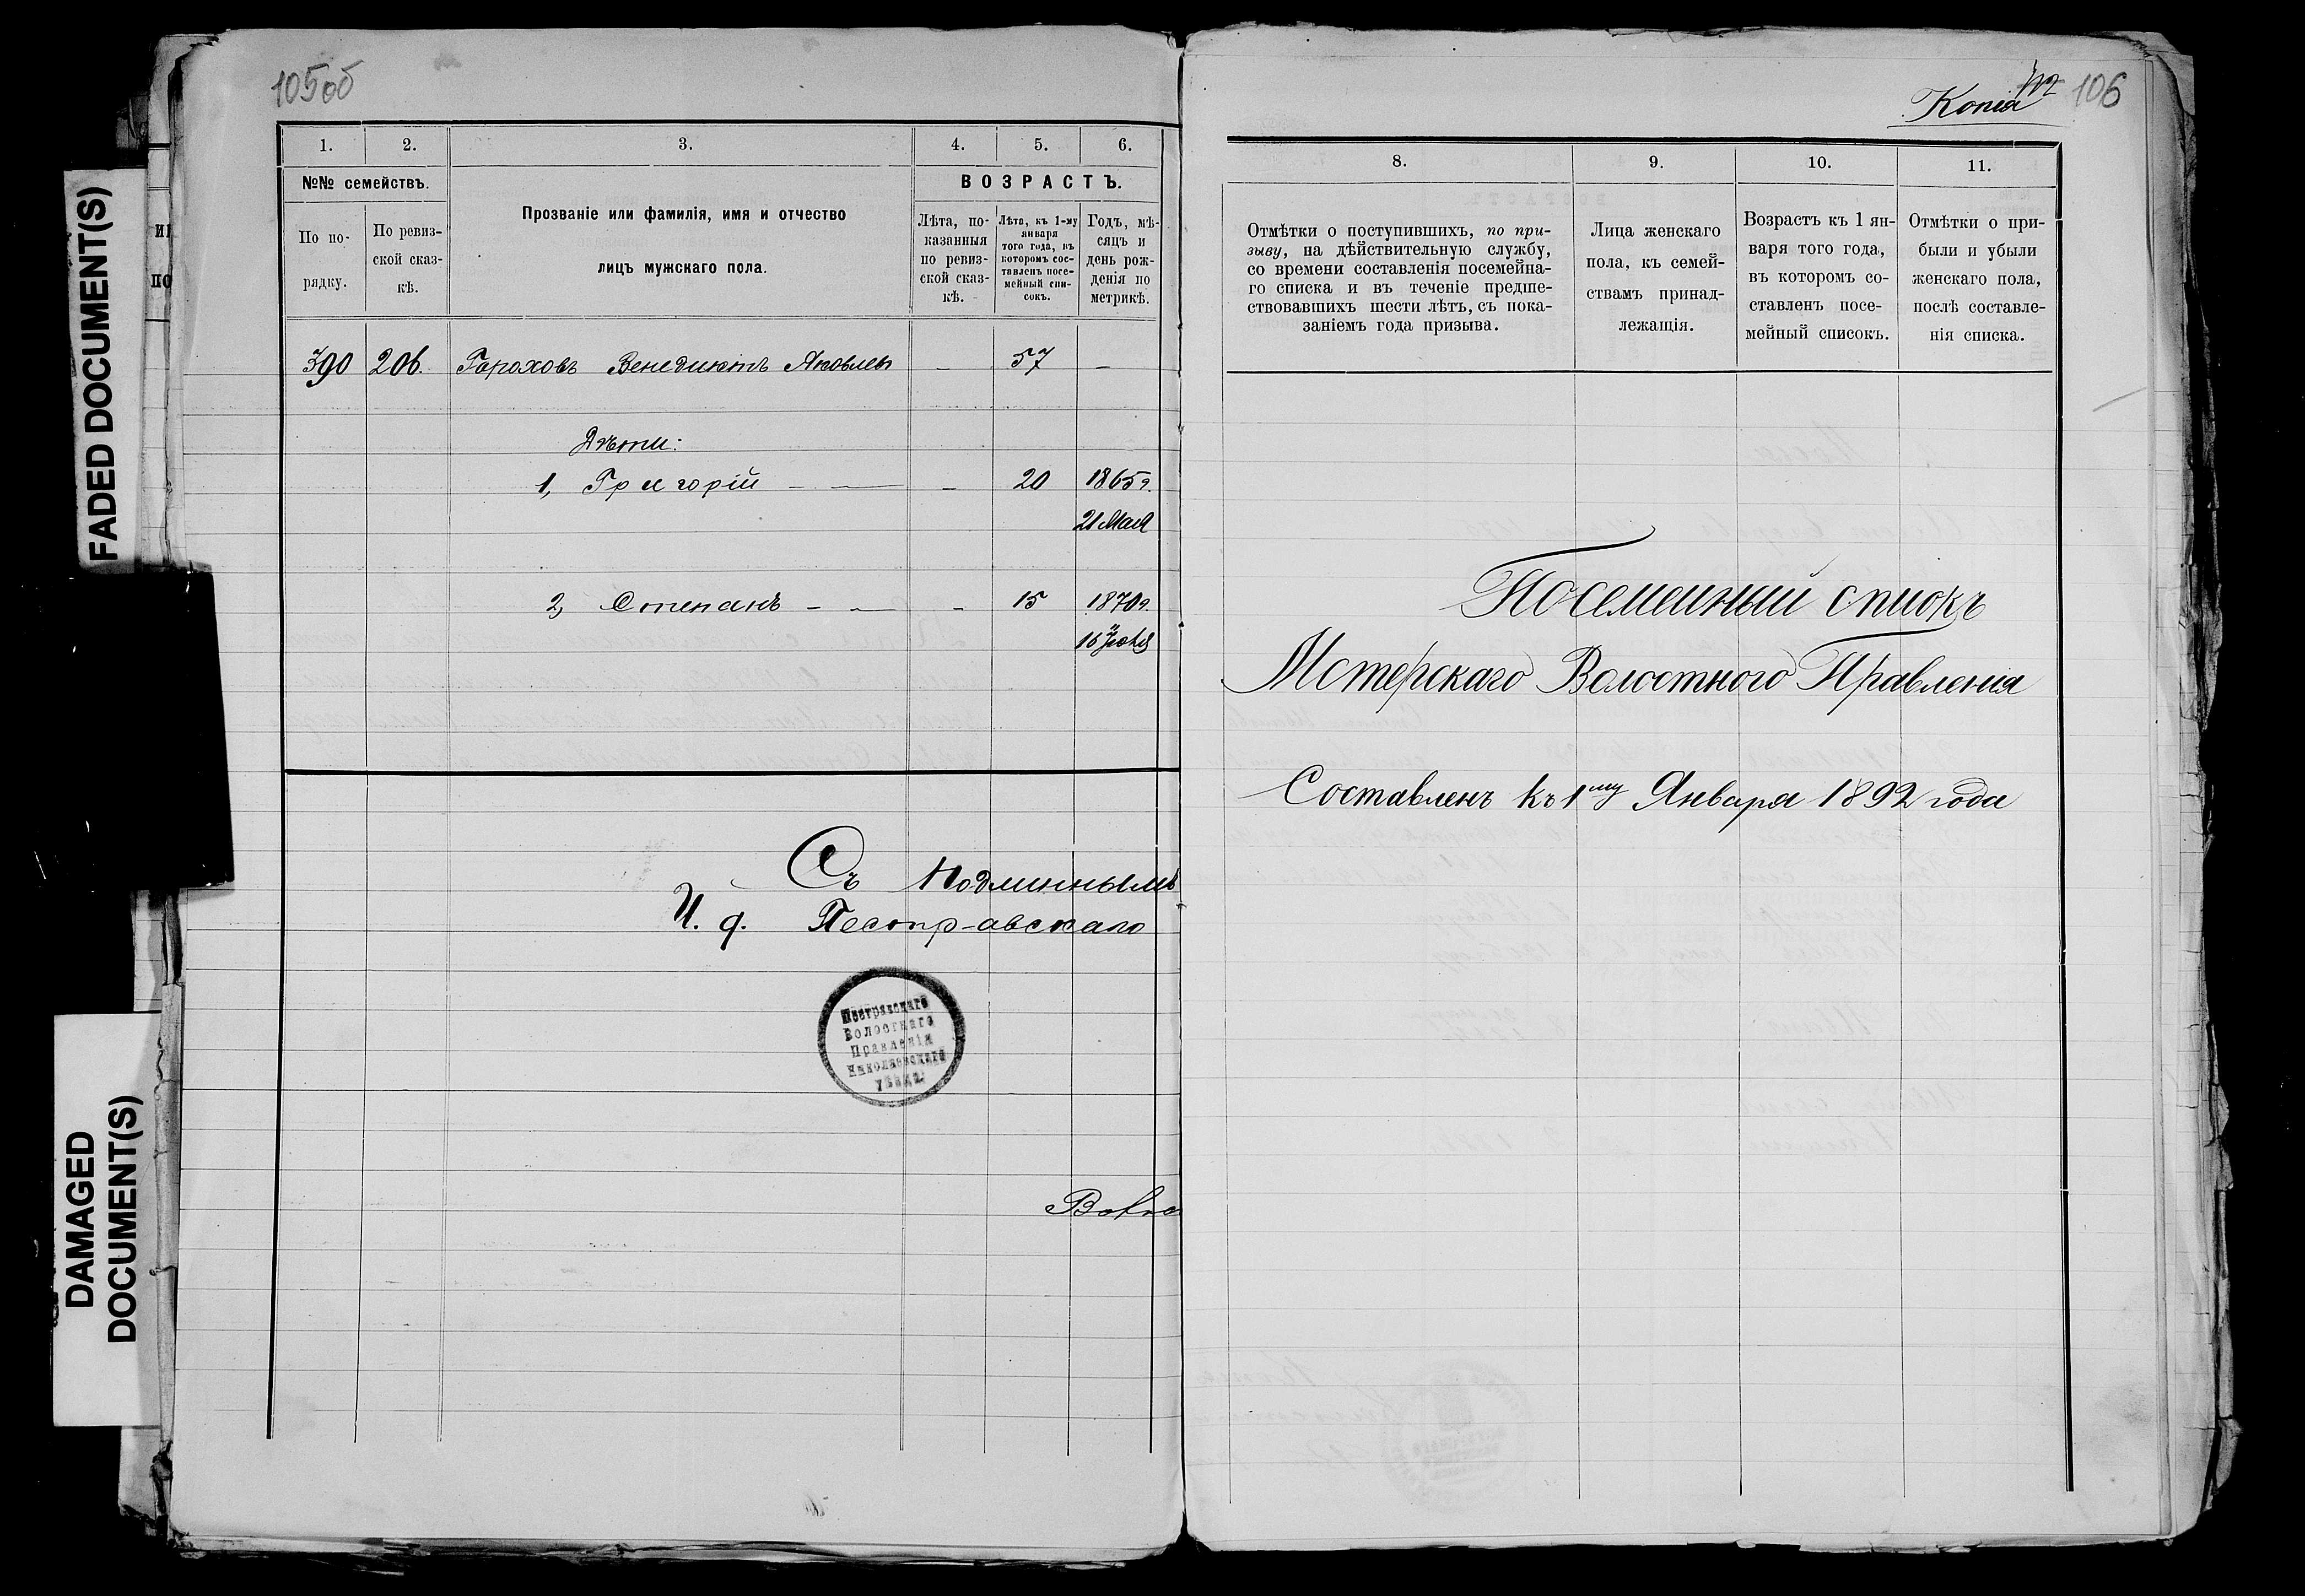 FADED DOCUMENT(S)
DAMAGED
DOCUMENT(S)
105об
1. 2. 3. 4. 5. 6.
№№ семействъ.
ВОЗРАСТЪ.
По по-
рядку.
По ревиз-
ской сказ-
кѣ.
Прозваніе или фамилія, имя и отчество
лицъ мужскаго пола.
Лѣта, по-
казанныя
по ревиз-
ской сказ-
кѣ.
Лѣта, къ 1-му
января
того года, въ
которомъ сос-
тавленъ посе-
мейный спи-
сокъ.
Годъ, мѣ-
сяцъ и
день рож-
денія по
метрикѣ.
390 206. Гороховъ Венедиктъ Яковлев — 57 —
Дѣти:
1, Григорій — — — 20 1865г.
21 Мая
2, Степанъ — — — 15 1870г.
16 Іюня
Съ подлиннымъ
И. д.
Волостнаго
Правленія
Николаевскаго
уѣзда
106
Копія
8. 9. 10. 11.
Отмѣтки о поступившихъ, по при-
зыву, на дѣйствительную службу,
со времени составленія посемейна-
го списка и въ теченіе предше-
ствовавшихъ шести лѣтъ, съ пока-
заніемъ года призыва.
Лица женскаго
пола, къ семей-
ствамъ принад-
лежащія.
Возрастъ къ 1 ян-
варя того года,
въ которомъ со-
ставленъ посе-
мейный списокъ.
Отмѣтки о при-
были и убыли
женскаго пола,
послѣ составле-
нія списка.
Посемейный списокъ
Мстерскаго Волостного Правленія
Составленъ къ 1му Января 1892 года